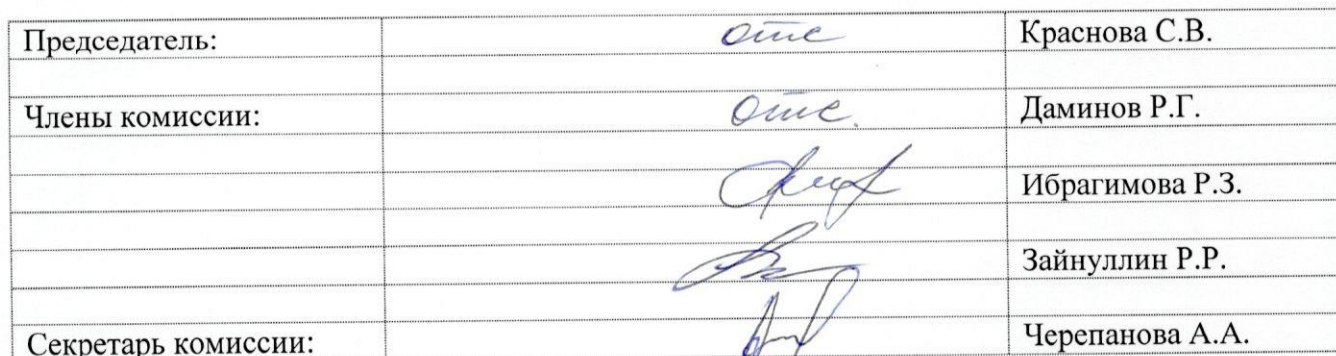 Председатель: отс Краснова С.В.
Члены комиссии: отс. Даминов Р.Г.
Ибрагимова Р.З.
Зайнуллин Р.Р.
Секретарь комиссии: Черепанова А.А.